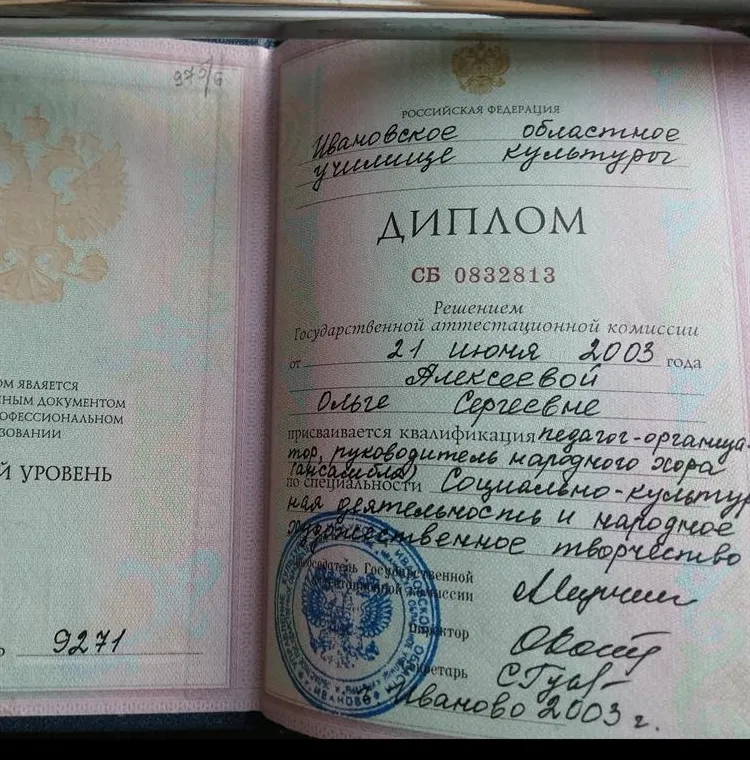 975/6
ОМ ЯВЛЯЕТСЯ
ННЫМ ДОКУМЕНТОМ
ОФЕССИОНАЛЬНОМ
ЗОВАНИИ
Й УРОВЕНЬ
9271
РОССИЙСКАЯ ФЕДЕРАЦИЯ
Ивановское областное
училище культуры
ДИПЛОМ
СБ 0832813
Решением
Государственной аттестационной комиссии
от 21 июня 2003 года
Алексеевой
Ольге Сергеевне
присваивается квалификация педагог-организа-
тор, руководитель народного хора
(ансамбля)
по специальности Социально-культур
ная деятельность и народное
художественное творчество
Председатель Государственной
аттестационной комиссии
Директор
Секретарь
Иваново 2003 г.